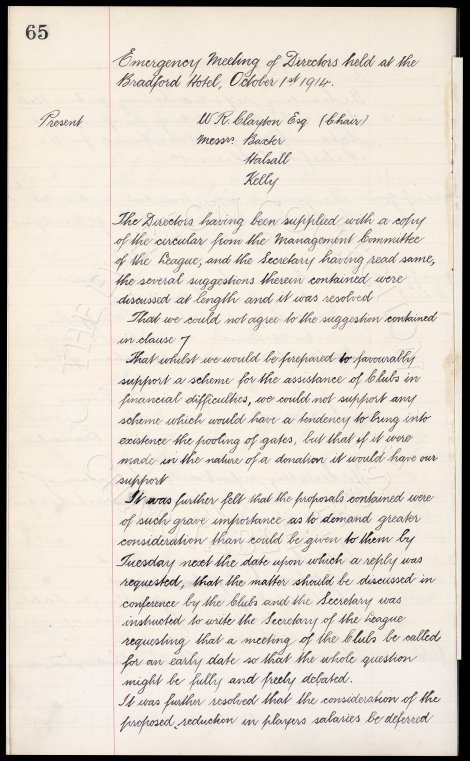 65
Emergency Meeting of Directors held at the
Bradford Hotel, October 1st 1914.
Present W. R. Clayton Esq (Chair)
Messrs. Baxter
Halsall
Kelly
The Directors having been supplied with a copy
of the circular from the Management Committee
of the League, and the Secretary having read same,
the several suggestions therein contained were
discussed at length and it was resolved
That we could not agree to the suggestion contained
in clause 7
That whilst we would be prepared to favourably
support a scheme for the assistance of Clubs in
financial difficulties, we could not support any
scheme which would have a tendency to bring into
existence the pooling of gates, but that if it were
made in the nature of a donation it would have our
support
It was further felt that the proposals contained were
of such grave importance as to demand greater
consideration than could be given to them by
Tuesday next the date upon which a reply was
requested, that the matter should be discussed in
conference by the Clubs and the Secretary was
instructed to write the Secretary of the League
requesting that a meeting of the Clubs be called
for an early date so that the whole question
might be fully and freely debated.
It was further resolved that the consideration of the
proposed reduction in players salaries be deferred